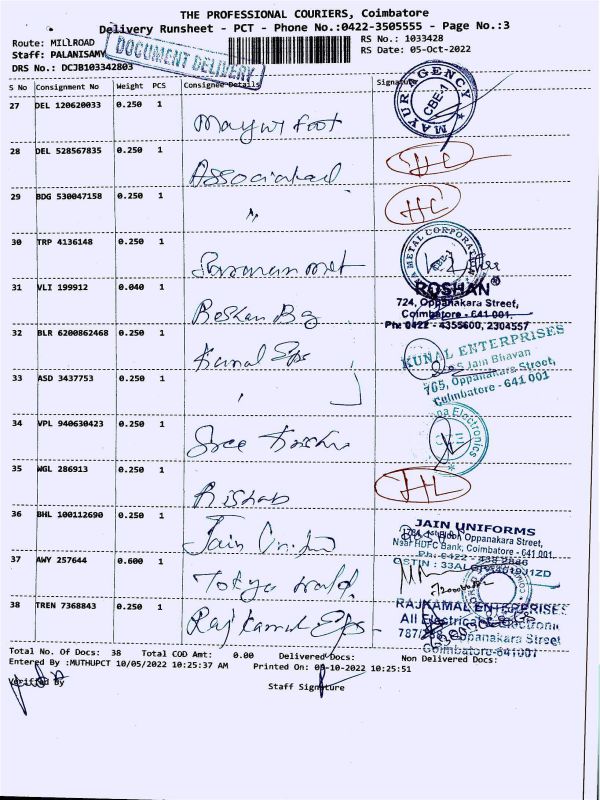 THE PROFESSIONAL COURIERS, Coimbatore
Delivery Runsheet - PCT - Phone No.:0422-3505555 - Page No.:3
Route: MILLROAD
RS No.: 1033428
Staff: PALANISAMY
DOCUMENT DELIVERY
RS Date: 05-Oct-2022
DRS No.: DCJB103342803
S No Consignment No Weight PCS Consignee Details Signature
27 DEL 120620033 0.250 1 Mayur foot
MAYUR AGENCY CBE-1
28 DEL 528567835 0.250 1 Associated
29 BDG 530047158 0.250 1 "
30 TRP 4136148 0.250 1
METAL CORPORATION
31 VLI 199912 0.040 1 Roshan Bag
ROSHAN®
724, Oppanakara Street,
Coimbatore - 641 001.
Ph: 0422 - 4355600, 2304557
32 BLR 6200862468 0.250 1 Kunal Eps
KUNAL ENTERPRISES
S Jain Bhavan
765, Oppanakara Street,
Coimbatore - 641 001
33 ASD 3437753 0.250 1
34 VPL 940630423 0.250 1 Sree Krishna
Electronics
35 WGL 286913 0.250 1 Rishab
36 BHL 100112690 0.250 1 Jain Uniform
JAIN UNIFORMS
Oppanakara Street,
Near HDFC Bank, Coimbatore - 641 001.
37 AWY 257644 0.600 1 Tokyo
38 TREN 7368843 0.250 1 Rajkamal Eps
RAJKAMAL ENTERPRISES
All Electrical
Oppanakara Street
Coimbatore-641001
Total No. Of Docs: 38 Total COD Amt: 0.00 Delivered Docs: Non Delivered Docs:
Entered By :MUTHUPCT 10/05/2022 10:25:37 AM Printed On: 05-10-2022 10:25:51
Verified By
Staff Signature